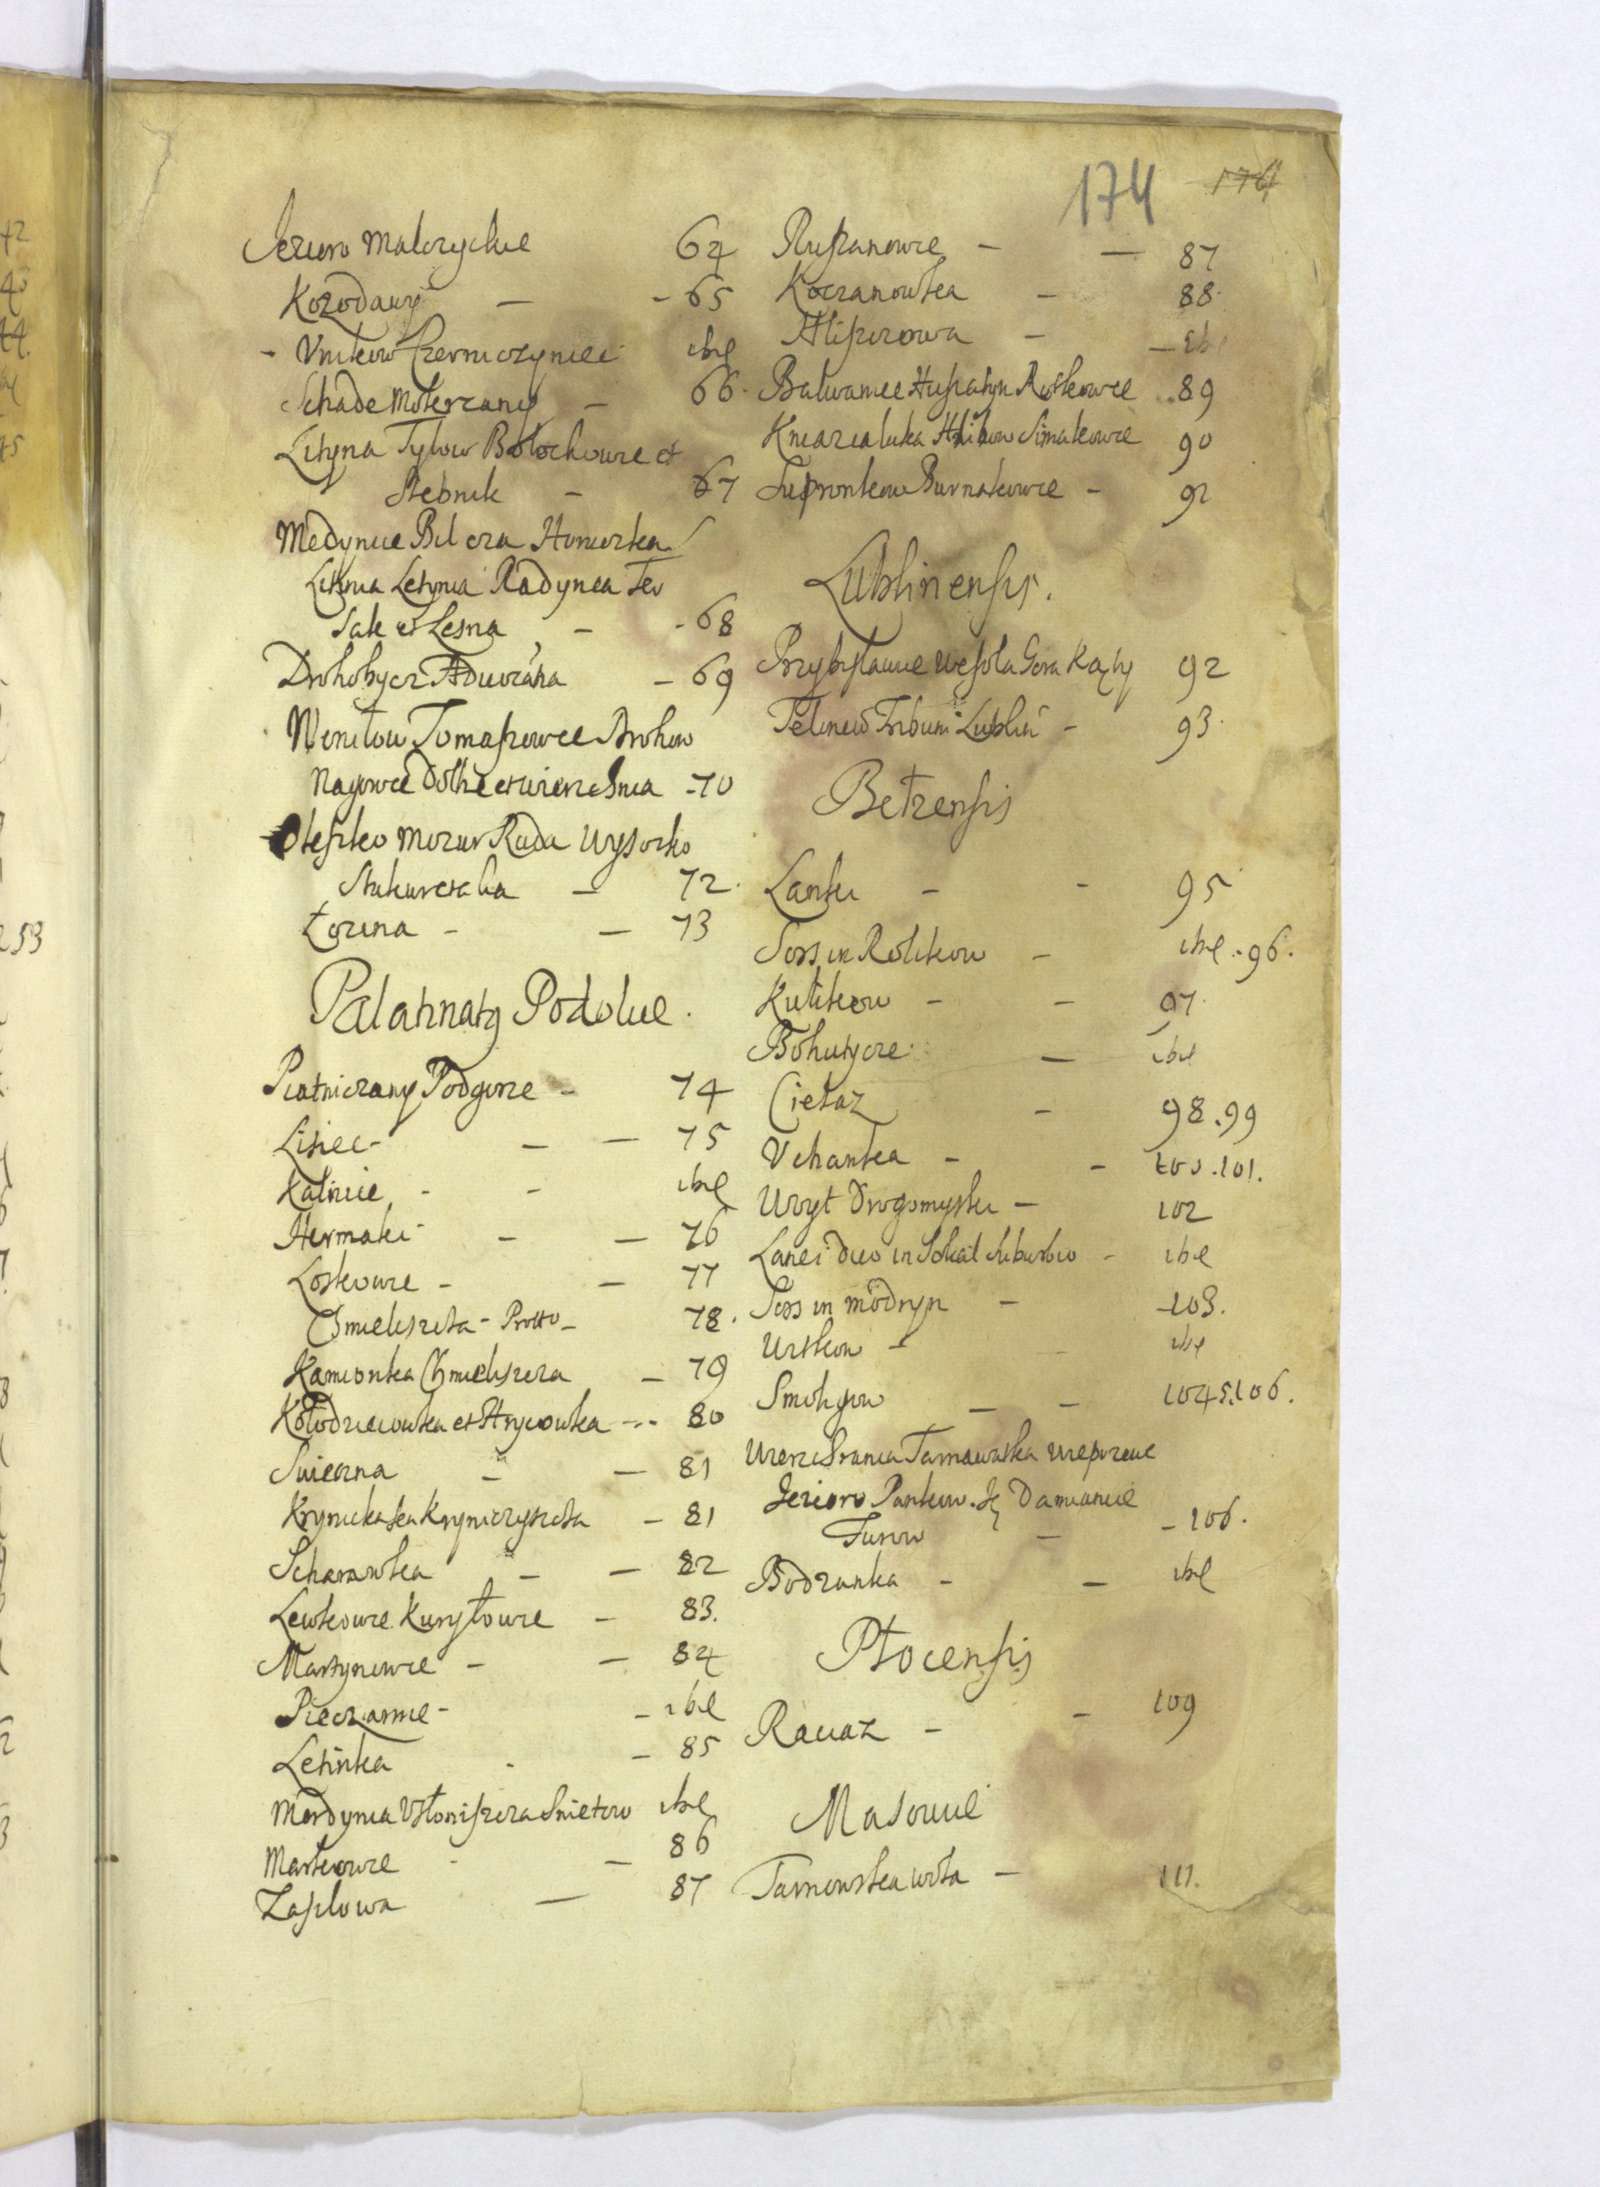 174 174
Jezioro Malczyckie 64
Kozodawÿ — - 65
- Vnikow Czerniczyniec ibl
Schade Moderzanÿ — 66.
Litynia Tylow Bolochowce et
Stebnik — 67
Medynice Bilcza Horucko
Litynia Letynia Radynca seu
Sale et Lesna — - 68
Drohobycz Adworna — 69
Wonilow Tomaszowce Brohow
Nagowce Dolhe et wierzchnia - 70
Oleszko Mozuv Ruda Wysocko
72.
Łozina — — 73
Palatinatg Podolie.
Piatniczanÿ Podgorze — 74
Lisiec — — 75
Kalinie - - ibl
Hermaki — — 76
Loskowce — — 77
Chmieliszcza - Protto — 78.
Kamionka Chmieliszcza — 79
Kołodziciowka et Hrycowka --- 80
Swierzna — — 81
Krynicka seu Kryniczyszcza — 81
Scharawka — — 82
Lewkowce Kuryłowce — 83.
Martynowce — — 84
Pieczarnie - - ibl
Letinka - — 85
Mordynia Vstoniszcza Snietow ibl
Markowce - — 86
Zasulowa — 87
Ruszanowce — — 87
Koczanowka — 88.
Hliszczowa — — ibl
Balwanice Huszatyn Roskowce .. 89
Kniazialuka Hlibow Simakowce 90
Supronkow Burnakowce - 92
Lublinensis.
Przybysławice Wesoła Gora Kątÿ 92
Telinew Tribuni Lublin - 93.
Bełzensis
Lanki - - 95
Sors in Rolikow — ibl .. 96.
Kulikow - — 97.
Bohutycze — ibl
Ciełaz — 98.99
Vchanka - — 100.101.
Uryt Drogomysku — 102
Lanei duo in Sokal suburbio - ibl
Sors in Modryn — 103.
Urzkow — - ibl
Smoligow — — 104 5. 106.
Wierzchrania Tarnawatka Wieprzowe
Jezioro Pankow. Ję Damianice
Turow — - 106.
Bodzanka - — ibl
Płocensis
Raciaz - — 109
Masouie
Tarnowska wola — 111.